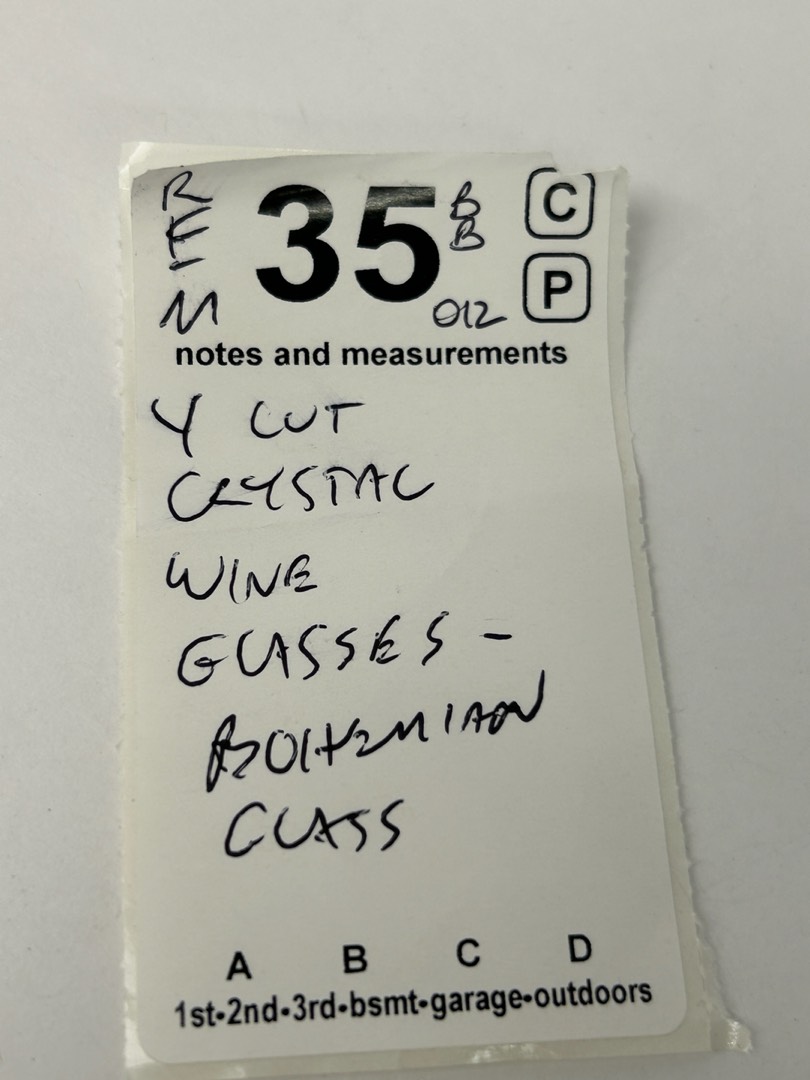 REM 35 BB 012
C
P
notes and measurements
4 CUT
CRYSTAL
WINE
GLASSES -
BOHEMIAN
GLASS
A B C D
1st•2nd•3rd•bsmt•garage•outdoors